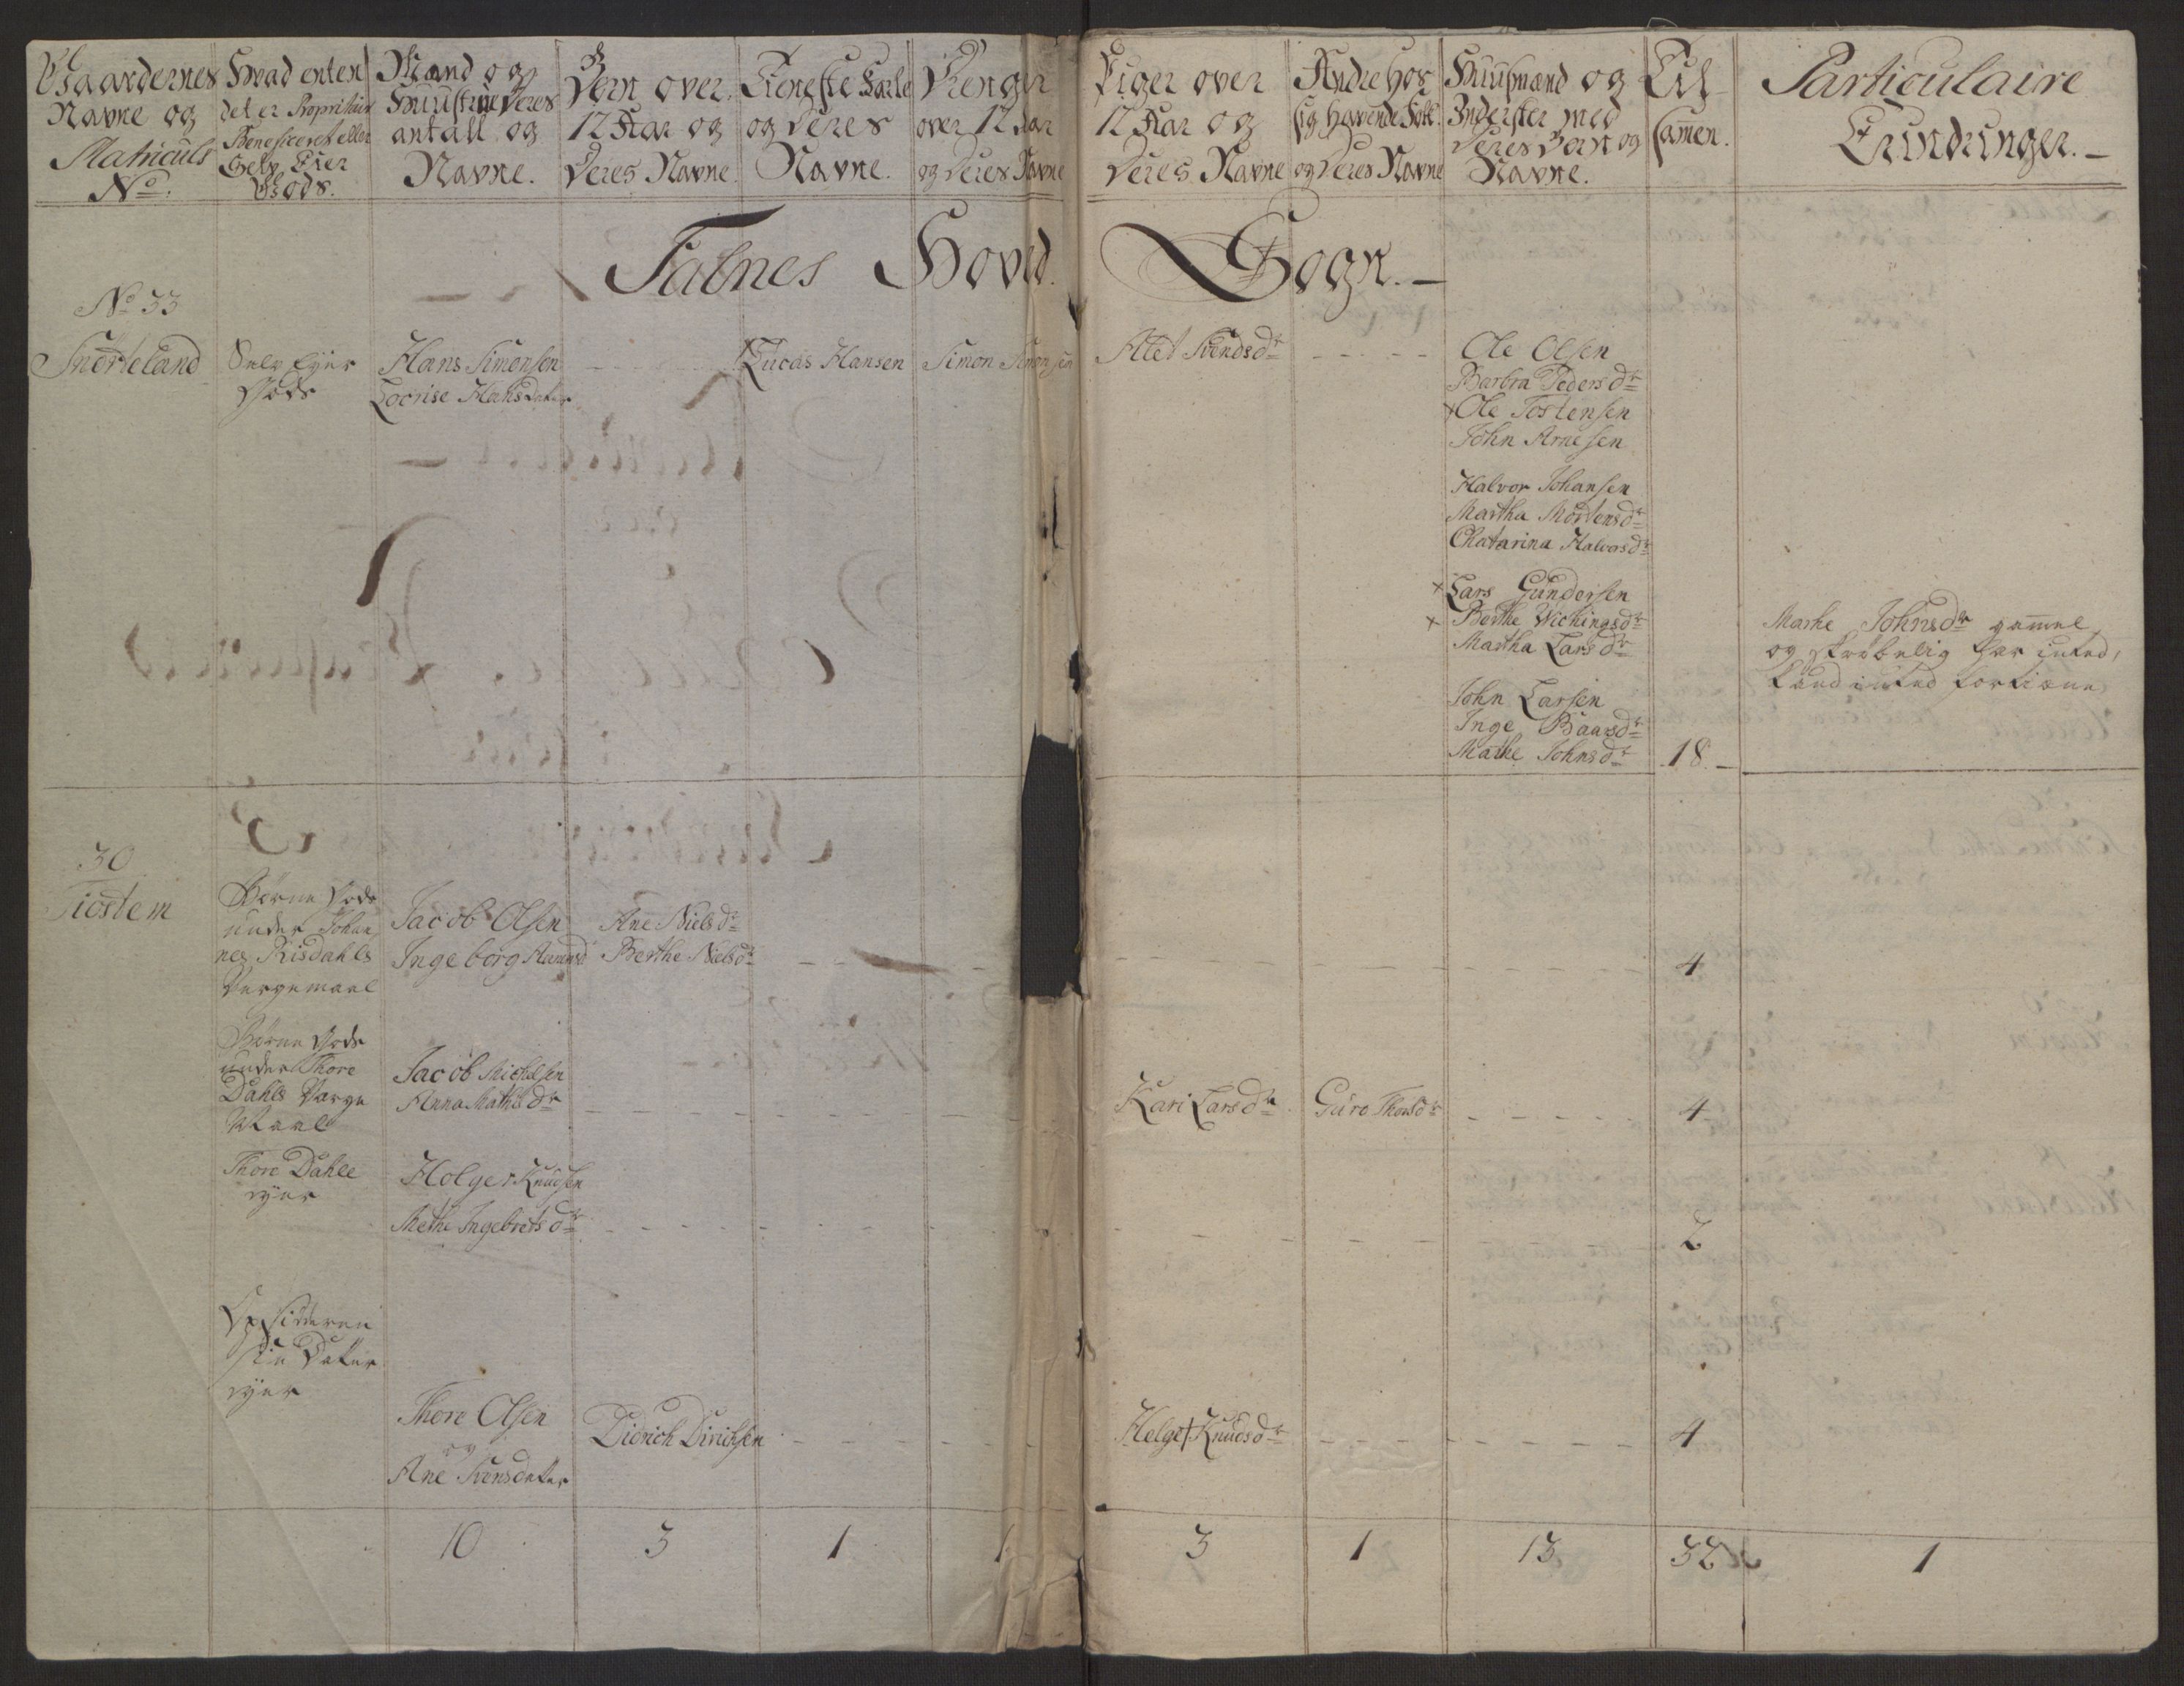 Gaardernes
Navne og
Matriculs
No.
Hvad enten
det er Propritair
Beneficeret eller
Selv Eier
Gods.
Mand og
Huustrue Deres
antall og
Navne.
Børn over
12 Aar og
Deres Navne.
Tieneste Karle
og Deres
Navne.
Drenger
over 12 aar
og Deres Navne
Piger over
12 Aar og
Deres Navne
Andre Hos
sig Havende Folk
og Deres Navne
Huusmænd og
Inderster med
Deres Børn og
Navne.
Til
samen.
Particulaire
Erindringer.
Falnes Hoved Sogn.
No 33
Snerteland
Selv Eyer
Gods
Hans Simonsen
Locrise Hansdater
Lucas Hansen
Simon Simonsen
Alet Svendsdr
Ole Olsen
Barbra Pedersdr
x Ole Tostensen
John Arnesen
Halvor Johansen
Martha Mortensdr
Chatarina Halvorsdr
x Lars Gundersen
x Berthe Wichingsdr
Martha Larsdr
John Larsen
Inge Baarsdr
Mathe Johnsdr
18
Marhe Johnsdr gammel
og skrøbelig har inted,
kand inted fortiene
30
Tiostem
Børne Gods
under Johan
nes Risdahls
Vergemaal
Jacob Olsen
Ingeborg
Ane Nielsdr
Berthe Nielsdr
4
Børne Gods
under Thore
Dahls Værge
Maal
Jacob Michelsen
Anna Mathisdr
Kari Larsdr
Guro Thorsdr
4
Thore Dahle
eyer
Holger Knudsen
Methe Ingebretsdr
2
Opsidderen
sin Dater
eyer
Thore Olsen
og
Ane Svensdater
Didrich Dirichsen
Helge Knudsdr
4
10
3
1
1
3
1
13
32
1